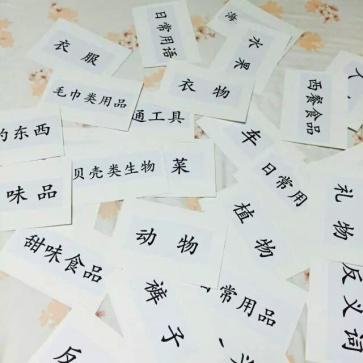 日常用语
海
水果
衣服
衣物
毛巾类用品
通工具
西餐食品
的东西
贝壳类生物
菜
车
日常用
味品
礼物
植物
动物
甜味食品
裤子
常用品
反义词
反